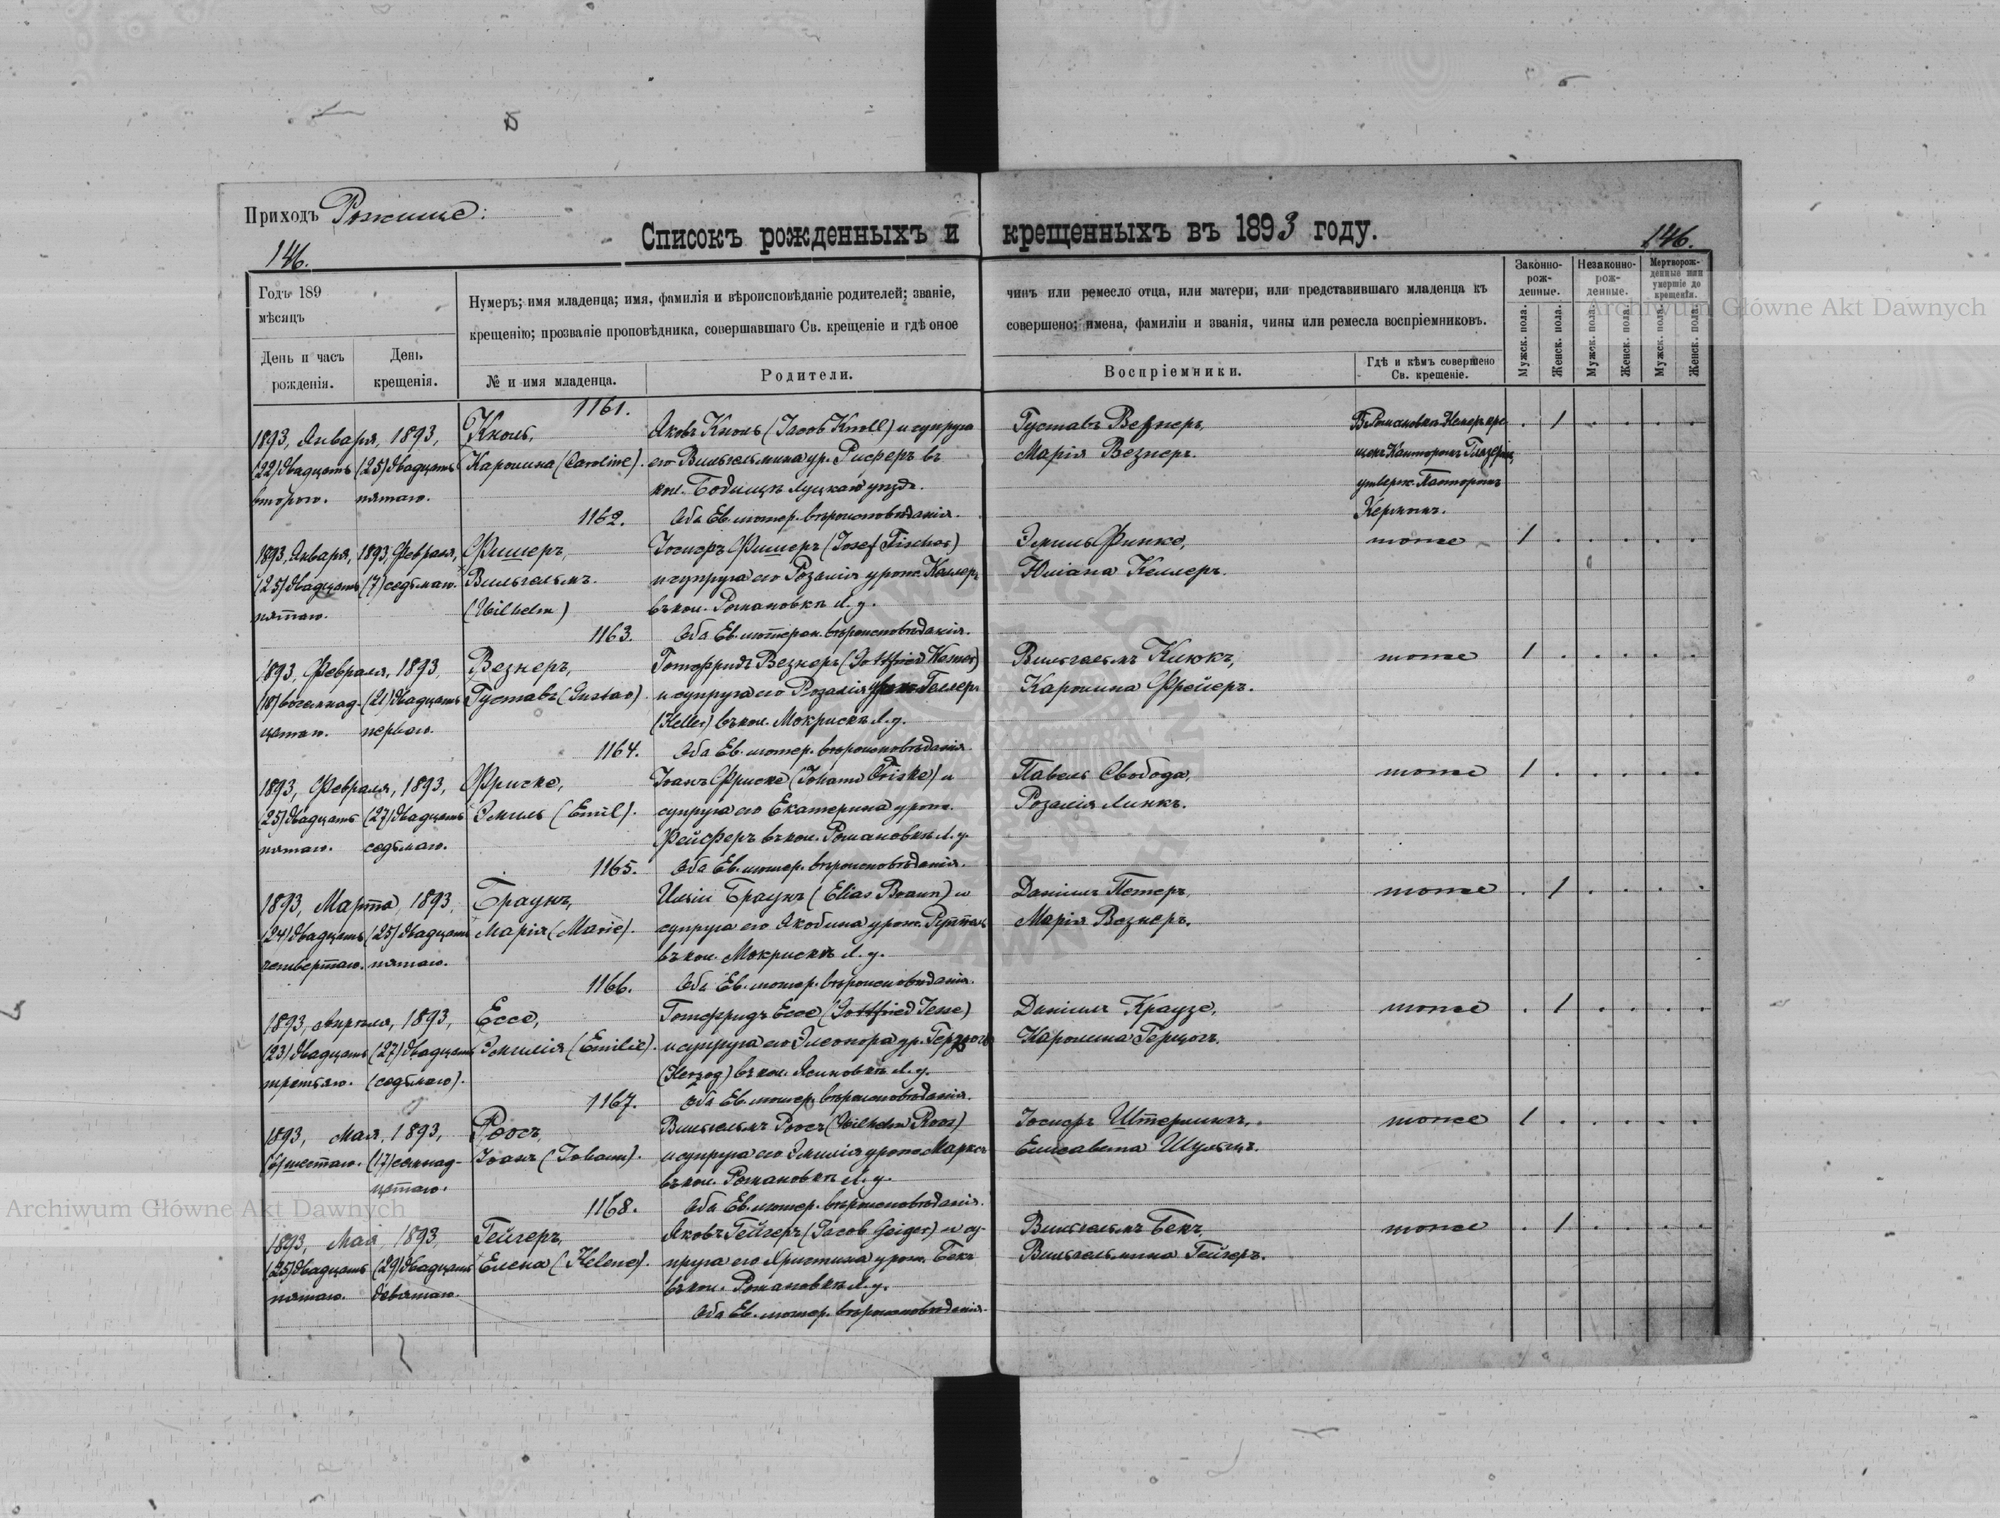 Приходъ Рожище:
Списокъ рожденныхъ и крещенныхъ въ 1893 году.
146.
146.
Годъ 189
мѣсяцъ
День и часъ рожденія.
День крещенія.
Нумеръ; имя младенца; имя, фамилія и вѣроисповѣданіе родителей; званіе,
крещенію; прозваніе проповѣдника, совершавшаго Св. крещеніе и гдѣ оное
№ и имя младенца.
Родители.
чинъ или ремесло отца, или матери, или представившаго младенца къ
совершено; имена, фамиліи и званія, чины или ремесла воспріемниковъ.
Воспріемники.
Гдѣ и кѣмъ совершено
Св. крещеніе.
Законно-
рож-
денные.
Незаконно-
рож-
денные.
Мертворож-
денные или
умершіе до
крещенія.
Мужск. пола.
Женск. пола.
Мужск. пола.
Женск. пола.
Мужск. пола.
Женск. пола.
1161.
1893, Января, 1893,
Кноль,
Яковъ Кноль (Jacob Knoll) и супруга
Густавъ Везнеръ,
. 1 . . . .
(22) двадцать (25) двадцать
Каролина (Caroline).
его Вильгельмина ур. Рисферъ въ
Марія Везнеръ.
второго. пятаго.
кол. Луцкаго уѣзд.
утвержд. Пасторомъ
Керммъ.
Оба Ев. лютер. вѣроисповѣданія.
1162.
1893, Января, 1893, Февраля,
Фишеръ,
Іосифъ Фишеръ (Josef Fischer)
Эмиль Финке,
тоже
1 . . . . .
(25) двадцать (7) седьмаго.
Вильгельмъ.
и супруга его Розалія урож. Келлеръ
Юліана Келлеръ.
пятаго.
(Wilhelm)
въ кол. Романовкѣ Л. у.
Оба Ев. лютеран. вѣроисповѣданія.
1163.
1893, Февраля, 1893,
Везнеръ,
Готфридъ Везнеръ (Gottfried Wesner)
Вильгельмъ Клюкъ,
тоже
1 . . . . .
(18) восемнад- (21) двадцать
Густавъ (Gustav).
и супруга его Розалія урож. Геллеръ
Каролина Фрейеръ.
цатаго. перваго.
(Heller) въ кол. Мокрискъ Л. у.
Оба Ев. лютер. вѣроисповѣданія.
1164.
1893, Февраля, 1893,
Фриске,
Іоанъ Фриске (Johann Friske) и
Павелъ Свобода,
тоже
1 . . . . .
(25) двадцать (27) двадцать
Эмиль (Emil).
супруга его Екатерина урож.
Розалія Линкъ.
пятаго. седьмаго.
Фейферъ въ кол. Романовкѣ Л. у.
Оба Ев. лютер. вѣроисповѣданія.
1165.
1893, Марта, 1893,
Браунъ,
Илія Браунъ (Elias Braun) и
Даніилъ Петеръ,
тоже
. 1 . . . .
(24) двадцать (25) двадцать
Марія (Marie).
супруга его Якобина урож. Рутталь
Марія Везнеръ.
четвертаго. пятаго.
въ кол. Мокрискъ Л. у.
Оба Ев. лютер. вѣроисповѣданія.
1166.
1893, Апрѣля, 1893,
Ессе,
Готфридъ Ессе (Gottfried Jesse)
Даніилъ Краузе,
тоже
. 1 . . . .
(23) двадцать (27) двадцать
Эмилія (Emilie).
и супруга его Элеонора ур. Герцогъ
Каролина Герцогъ.
третьяго. (седьмаго).
(Herzog) въ кол. Ясиновкѣ Л. у.
Оба Ев. лютер. вѣроисповѣданія.
1167.
1893, Мая, 1893,
Роосъ,
Вильгельмъ Роосъ (Wilhelm Roos)
Іосифъ Штерцль,
тоже
1 . . . . .
(6) шестаго. (17) семнад-
Іоанъ (Johann).
и супруга его Эмилія урож. Марксъ
Елисавета Шульцъ.
цатаго.
въ кол. Романовкѣ Л. у.
Оба Ев. лютер. вѣроисповѣданія.
1168.
1893, Мая 1893,
Гейгеръ,
Яковъ Гейгеръ (Jacob Geiger) и су-
Вильгельмъ Бекъ,
тоже
. 1 . . . .
(25) двадцать (29) двадцать
Елена (Helene).
пруга его Христина урож. Бекъ
Вильгельмина Гейгеръ.
пятаго. девятаго.
въ кол. Романовкѣ Л. у.
Оба Ев. лютер. вѣроисповѣданія.
Archiwum Główne Akt Dawnych
Archiwum Główne Akt Dawnych